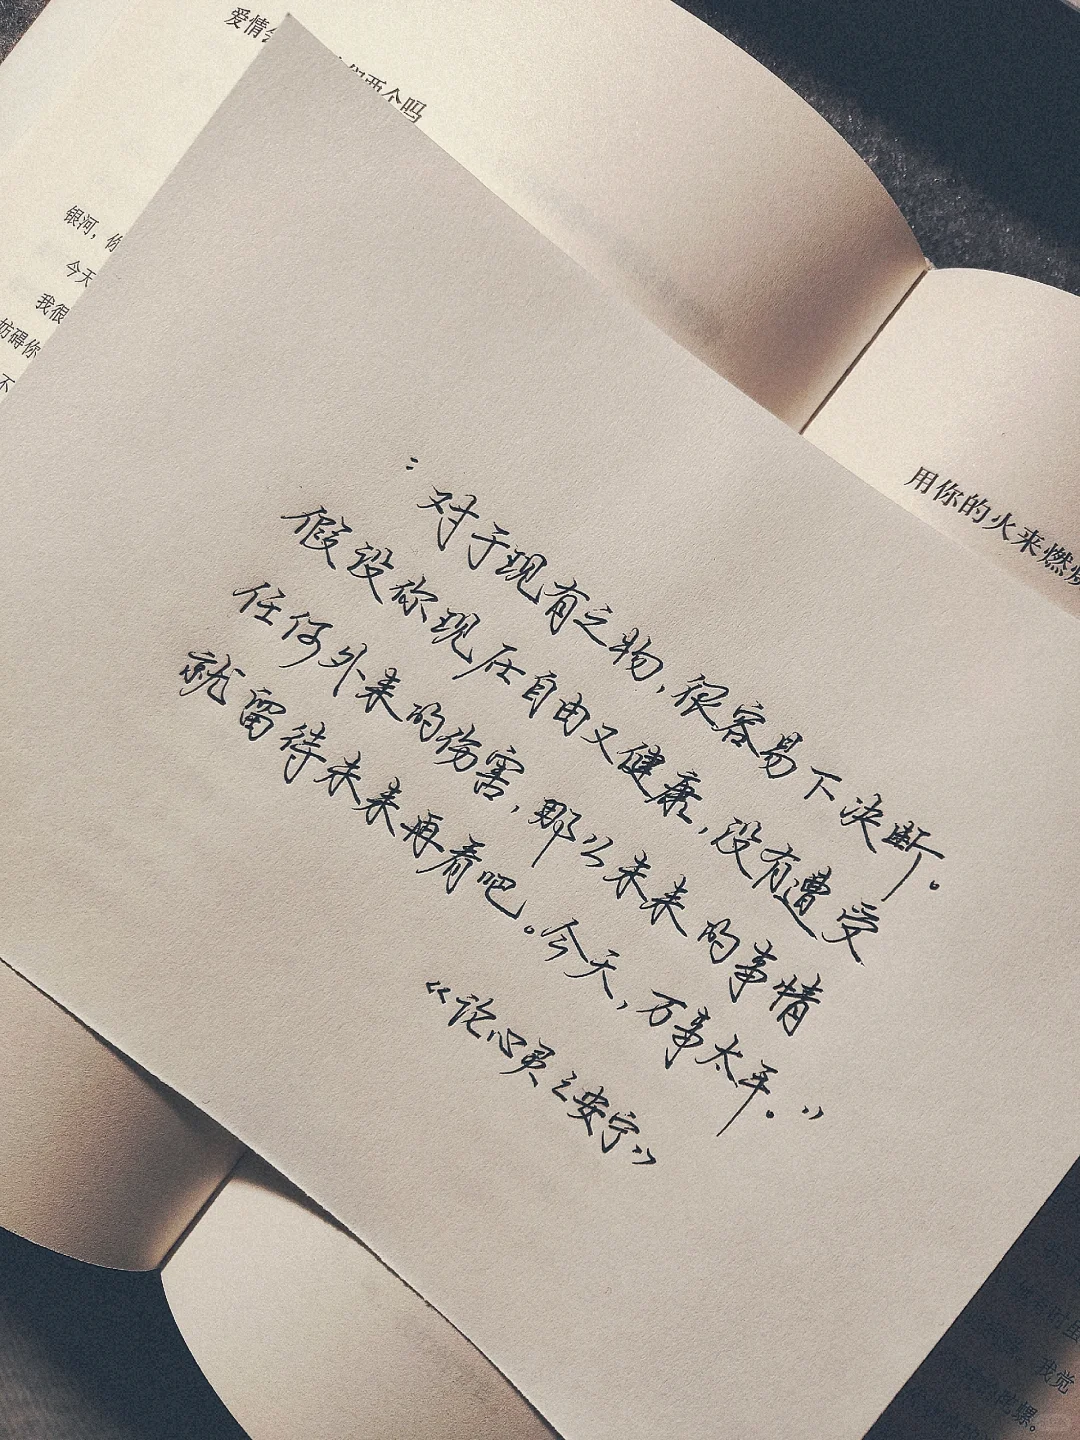 爱情
两个吗
银河，你
今天
我很
妨碍你
不
用你的火来燃烧
“对于现有之物，很容易下决断。
假设你现在自由又健康，没有遭受
任何外来的伤害，那么未来的事情
就留待未来再看吧。今天，万事太平。”
《论心灵之安宁》
我觉
螺。